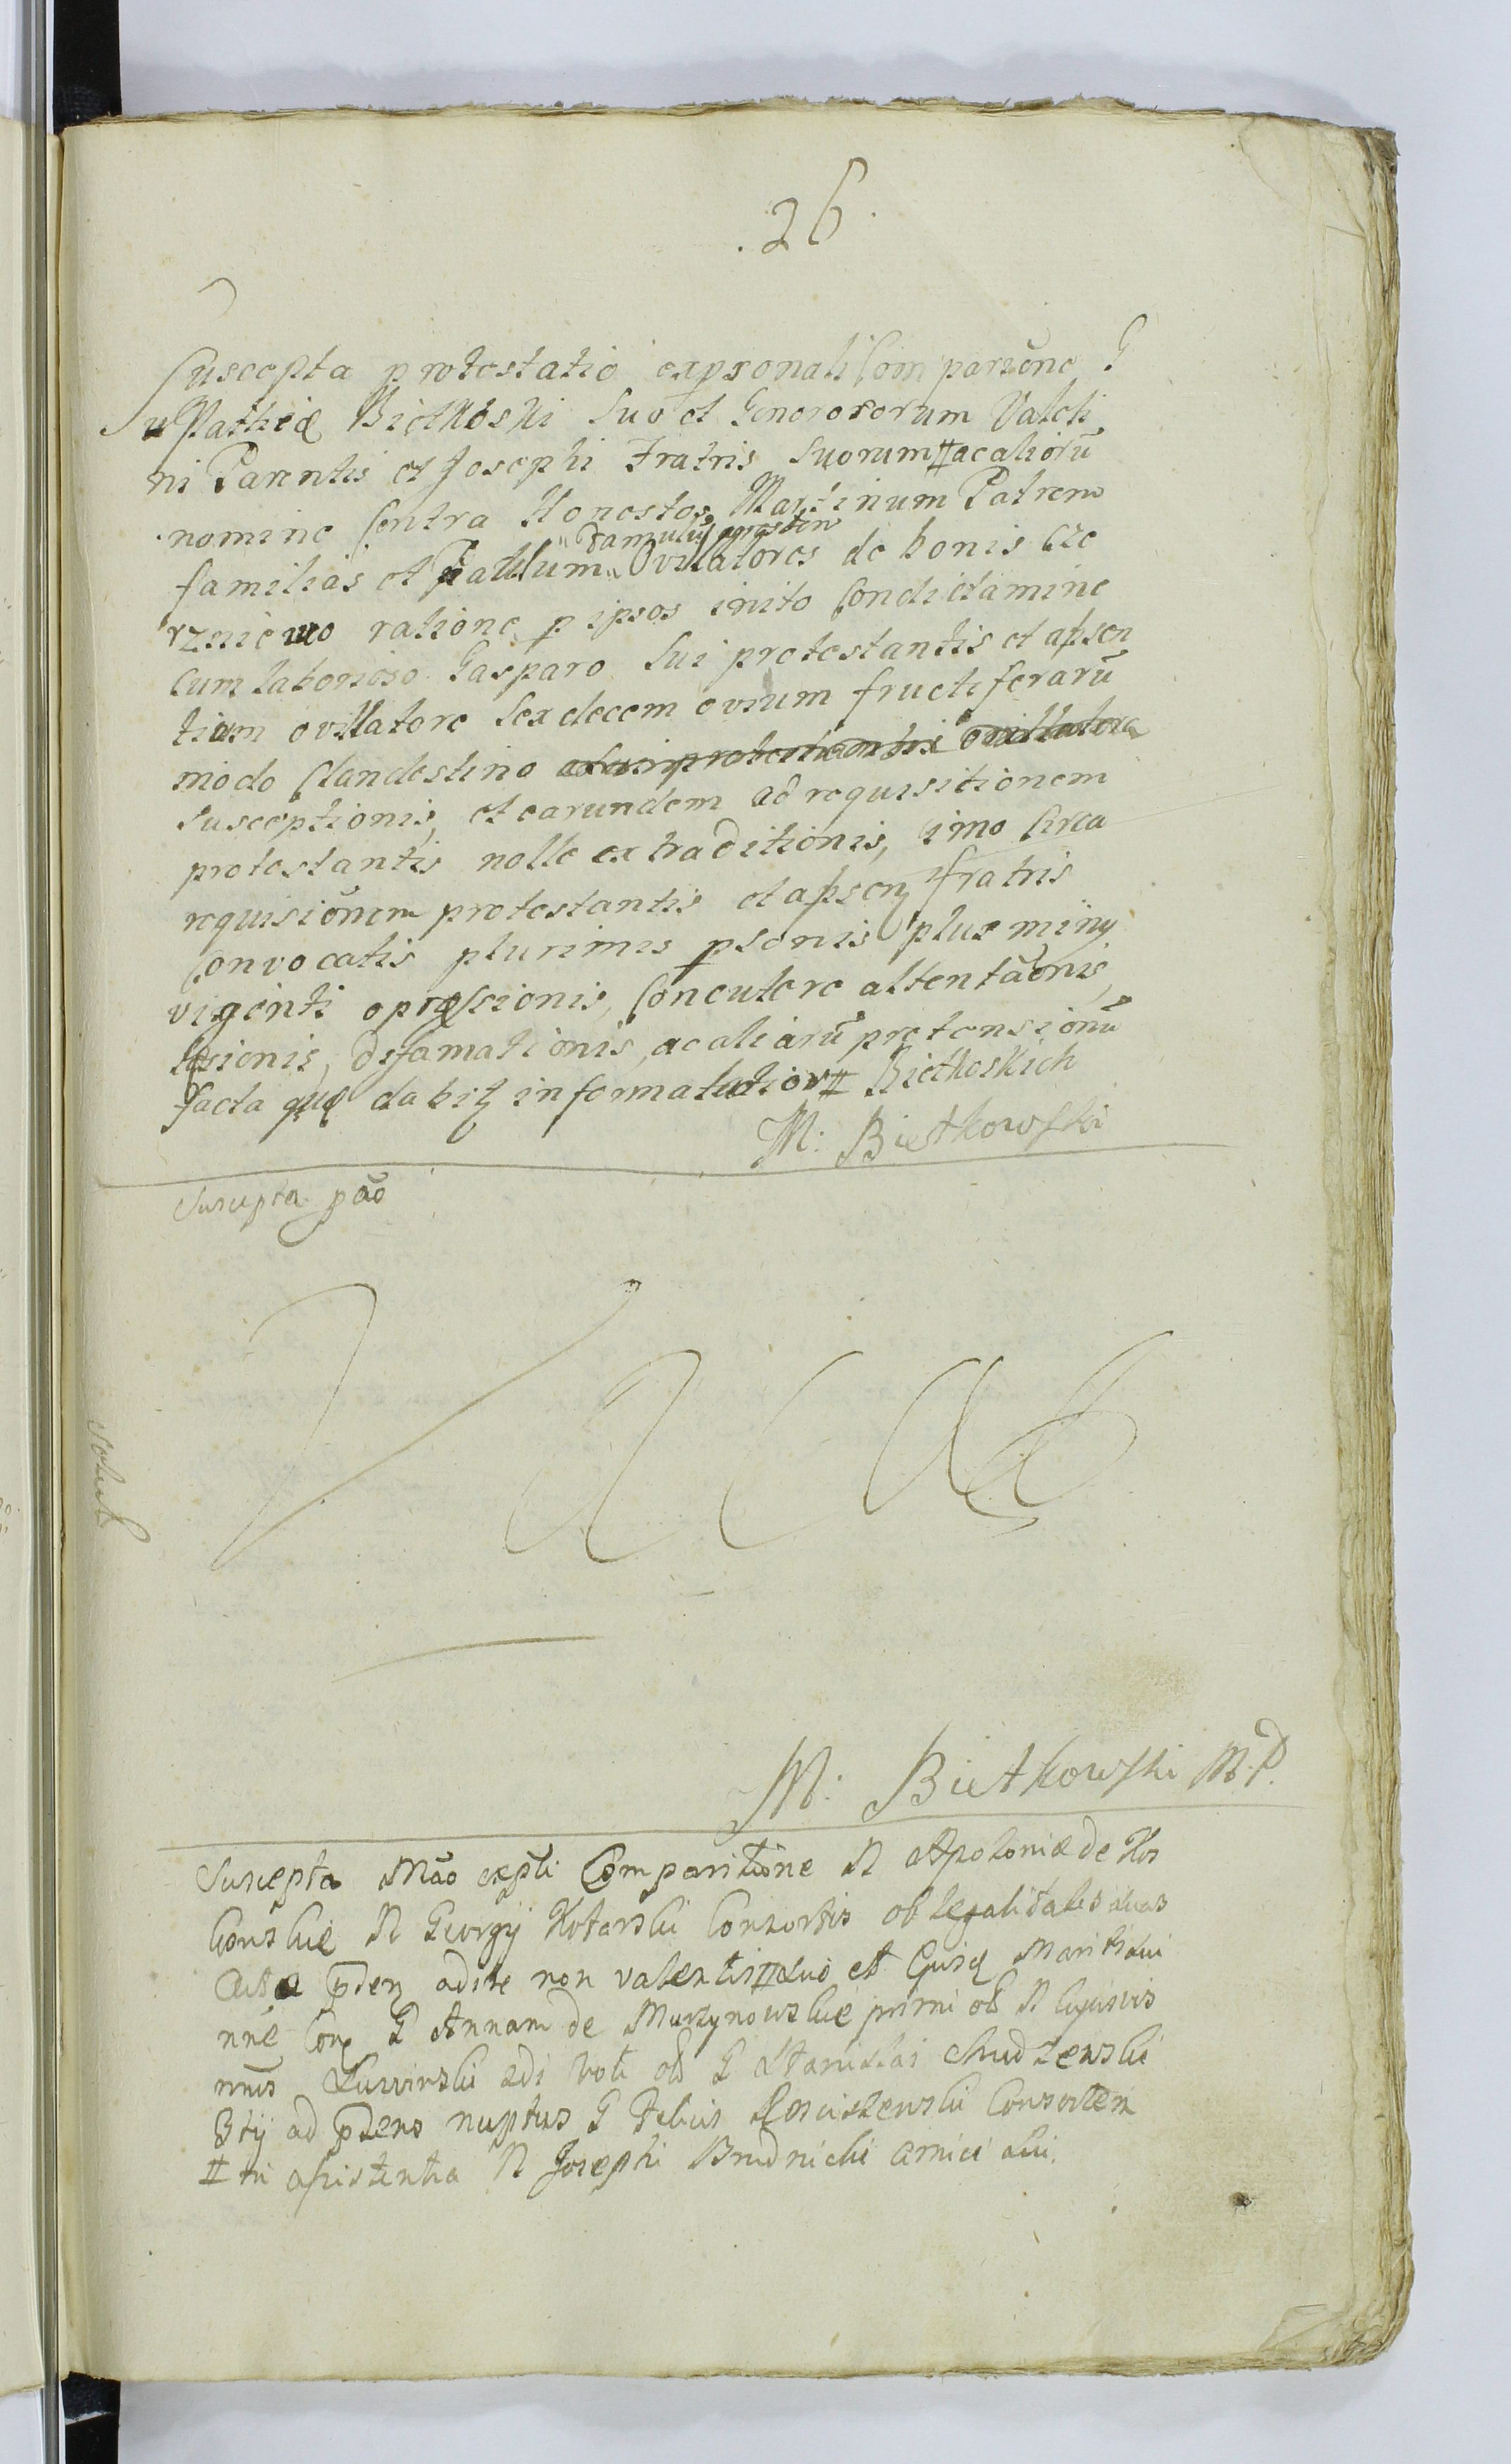 .26.
Suscepta protestatio expsonali Comparõne G
Mathiæ Bietkoski Suo et Generosorum Valeti
ni Parentis et Josephi Fratris Suorum # ac aliorũ
nomine Contra Honestos Martinum Patrem
"famulũ
familias et Paulum" Ovilatores de bonis Cze
rzniewo ratione p ipsos inito Condictamine
Cum laborioso Gasparo Sui protestantis et absen
tium ovillatore Sexdecem ovium fructiferarũ
modo Clandestino
Susceptionis, et earundem ad requisitionem
protestantis nolle extraditionis, imo Circa
requisiõnem protestantis et absen fratris
Convocatis plurimis psonis plus miny
viginti opræssionis, Concutere attentãonis,
læsionis, difamationis, ac aliarũ prætensionũ
facta quæ dabit informatior # Bietkoskich
M: Bietkowski
Suscepta pão
Vacat
solut
M: Bietkowski M.P.
Suscepta Mão expli Comparitione N Apoloniæ de Kos
Conskie N Georgij Kotarski Consortis ob legalitates suas
Acta pden adire non valentis # suo et Ejusq Mariti sui
nne Con G Annam de Murzynowskie primi ob N Cypris
mus Luwinski 2di Voti ob G Stanislai Chudzewski
3tij ad pdens nuptus G Felicis Rosciszewski Consortem
# in assistentia N Josephi Brudnicki amici sui.